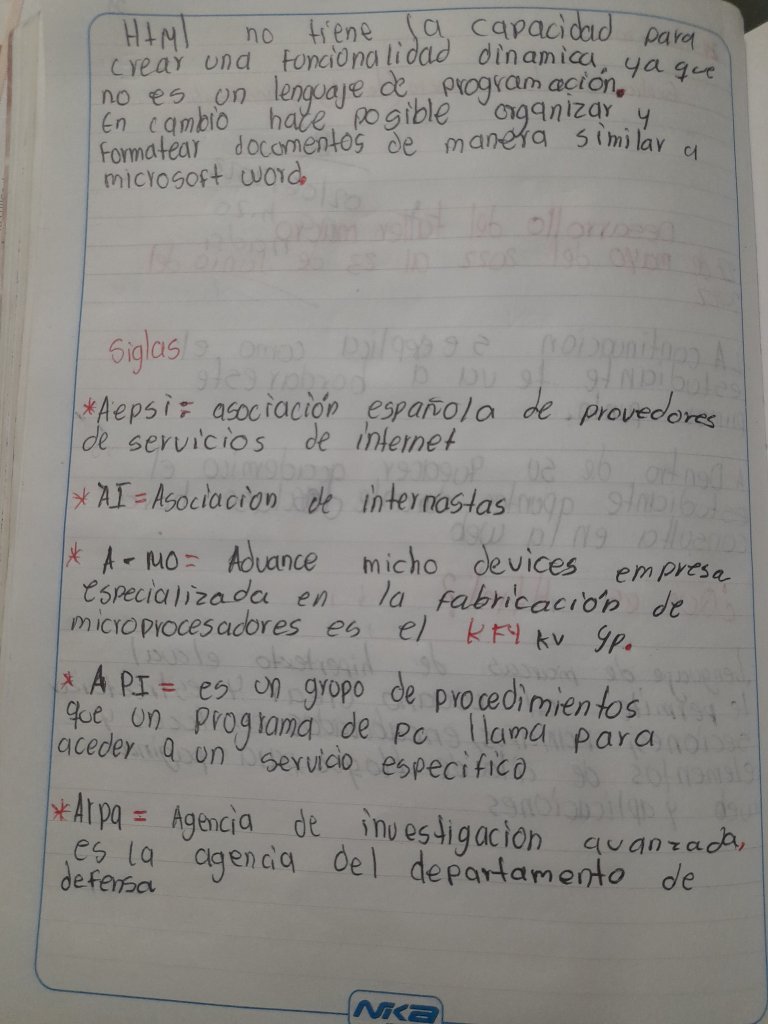 Html no tiene la capacidad para
crear una funcionalidad dinamica, ya que
no es un lenguaje de programación.
En cambio hace posible organizar y
formatear documentos de manera similar a
microsoft word.
Siglas
*Aepsi= asociación española de provedores
de servicios de internet
*AI=Asociacion de internastas
* A-MO= Advance micho devices empresa
especializada en la fabricación de
microprocesadores es el KF4 KV gp.
* API= es un grupo de procedimientos
que un programa de pc llama para
aceder a un servicio especifico
*Arpa= Agencia de investigacion avanzada,
es la agencia del departamento de
defensa
Nika